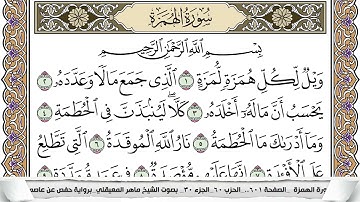 سُورَةُ الهُمَزَةِ
بِسْمِ اللَّهِ الرَّحْمَٰنِ الرَّحِيمِ
وَيْلٌ لِّكُلِّ هُمَزَةٍ لُّمَزَةٍ ١ الَّذِي جَمَعَ مَالًا وَعَدَّدَهُ ٢
يَحْسَبُ أَنَّ مَالَهُ أَخْلَدَهُ ٣ كَلَّا لَيُنبَذَنَّ فِي الْحُطَمَةِ ٤
وَمَا أَدْرَاكَ مَا الْحُطَمَةُ ٥ نَارُ اللَّهِ الْمُوقَدَةُ ٦ الَّتِي تَطَّلِعُ
عَلَى الْأَفْئِدَةِ ٧ إِنَّهَا عَلَيْهِم مُّؤْصَدَةٌ ٨ فِي عَمَدٍ مُّمَدَّدَةٍ ٩
ورة الهمزة _الصفحة ٦٠١_ الحزب ٦٠_الجزء ٣٠_ بصوت الشيخ ماهر المعيقلي_ برواية حفص عن عاصم